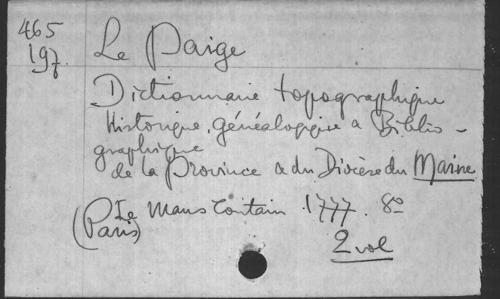 465
197.
Le Paige
Dictionnaire topographique
Historique, généalogique & Biblio-
graphique
de la Province & du Diocèse du Maine
Le Mans Toutain 1777. 8°
(Paris)
2 vol